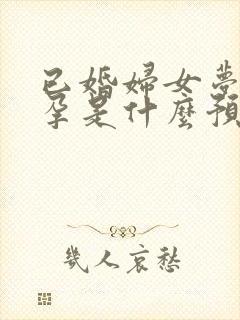 已婚婦女夢
孕是什麼預
幾人哀愁